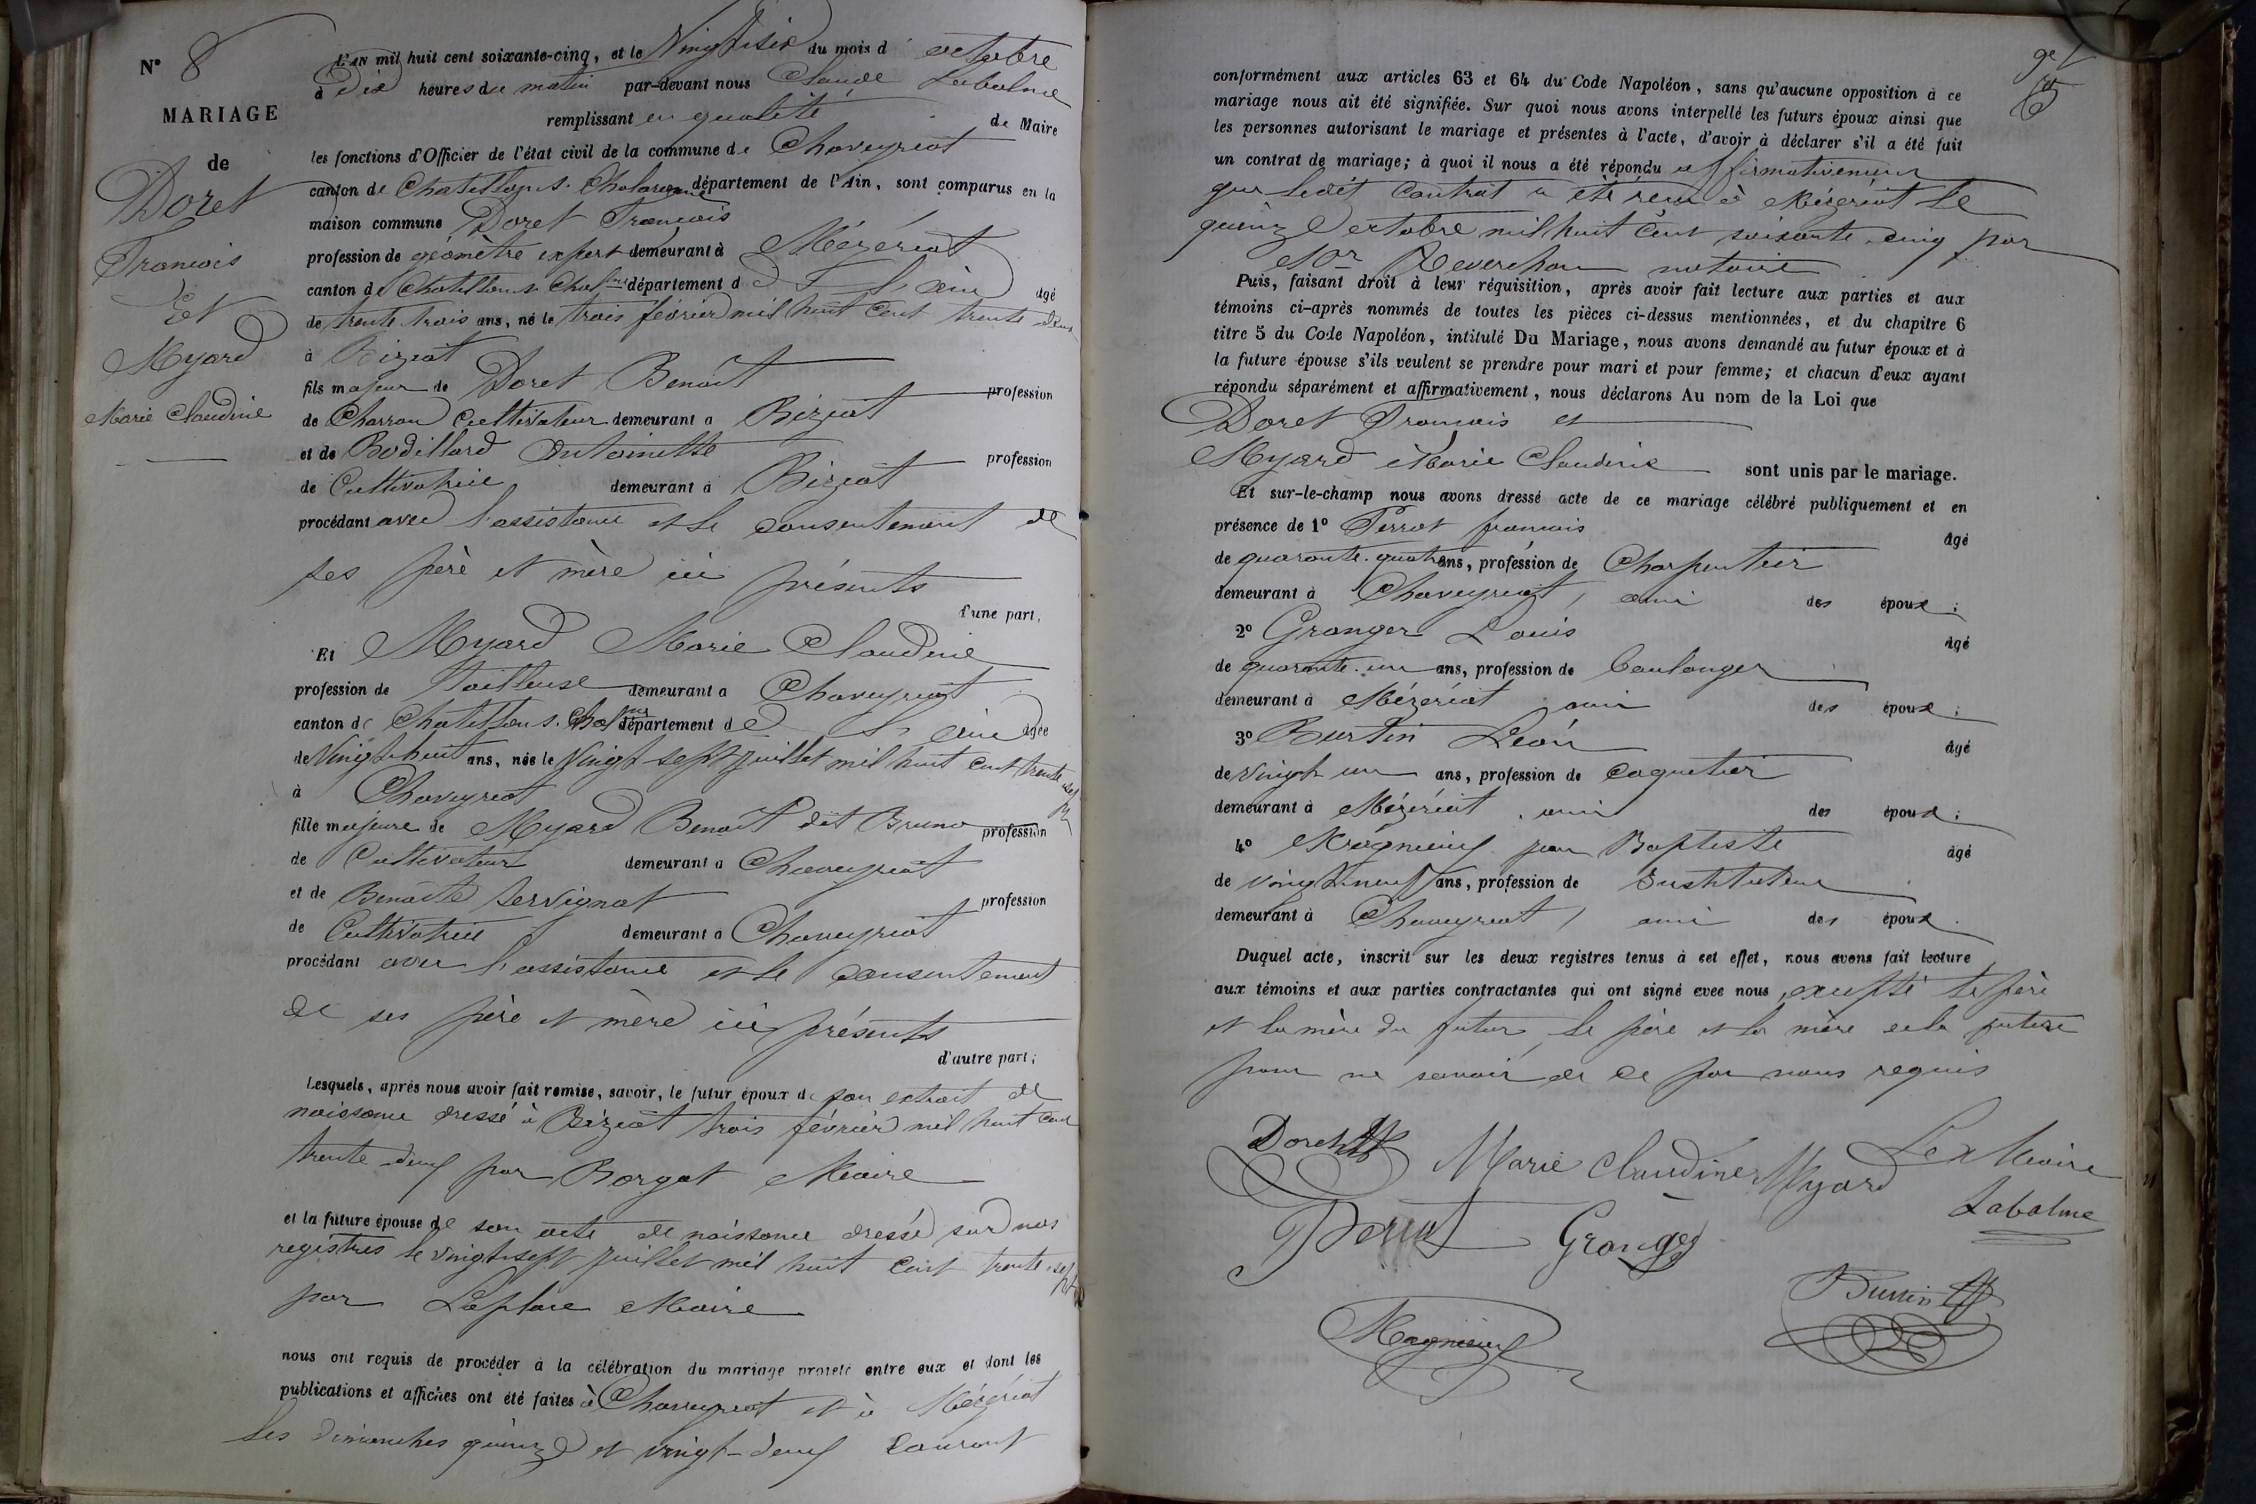 N° 8
MARIAGE
de
Doret
Francois
Et
Myard
Marie Claudine
L'AN mil huit cent soixante-cinq, et le Vingt six du mois d octobre
à dix heures du matin par-devant nous Claude Labalme
remplissant en qualité de Maire
les fonctions d'Officier de l'état civil de la commune de Chaveyriat
canton de Chatillon s. Chalaronne département de l'Ain, sont comparus en la
maison commune Doret Francois
profession de géomètre expert demeurant à Mézériat
canton de Chatillon s. Chalne département de L'ain âgé
de trente trois ans, né le trois février mil huit cent trente deux
à Biziat
fils majeur de Doret Benoît profession
de Charron Cultivateur demeurant à Biziat
et de Bodillard Antoinette profession
de Cultivatrice demeurant à Biziat
procédant avec l'assistance et le consentement de
ses père et mère ici présents
d'une part,
Et Myard Marie Claudine
profession de Tailleuse demeurant à Chaveyriat
canton de Chatillon s. Chalne département de L'ain âgée
de Vingt huit ans, née le Vingt sept juillet mil huit cent trente sept
à Chaveyriat
fille majeure de Myard Benoît dit Bruno profession
de Cultivateur demeurant à Chaveyriat
et de Benoîte Servignat profession
de Cultivatrice demeurant à Chaveyriat
procédant avec l'assistance et le consentement
de ses père et mère ici présents
d'autre part;
Lesquels, après nous avoir fait remise, savoir, le futur époux de son extrait de
naissance dressé à Biziat trois février mil huit cent
trente deux par Borgat Maire
et la future épouse de son acte de naissance dressé sur nos
registres le vingt sept juillet mil huit cent trente sept
par Laplace Maire
nous ont requis de procéder à la célébration du mariage projeté entre eux et dont les
publications et affiches ont été faites à Chaveyriat et à Mézériat
les dimanches quinze et vingt-deux courant
conformément aux articles 63 et 64 du Code Napoléon, sans qu'aucune opposition à ce
mariage nous ait été signifiée. Sur quoi nous avons interpellé les futurs époux ainsi que
les personnes autorisant le mariage et présentes à l'acte, d'avoir à déclarer s'il a été fait
un contrat de mariage; à quoi il nous a été répondu affirmativement
que ledit Contrat a été reçu à Mézériat le
quinze octobre mil huit cent soixante cinq par
Mr Reverchon notaire
Puis, faisant droit à leur réquisition, après avoir fait lecture aux parties et aux
témoins ci-après nommés de toutes les pièces ci-dessus mentionnées, et du chapitre 6
titre 5 du Code Napoléon, intitulé Du Mariage, nous avons demandé au futur époux et à
la future épouse s'ils veulent se prendre pour mari et pour femme; et chacun d'eux ayant
répondu séparément et affirmativement, nous déclarons Au nom de la Loi que
Doret Francois et
Myard Marie Claudine sont unis par le mariage.
Et sur-le-champ nous avons dressé acte de ce mariage célébré publiquement et en
présence de 1° Perrot francois âgé
de quarante-quatre ans, profession de Charpentier
demeurant à Chaveyriat, ami des époux;
2° Granger Louis âgé
de quarante-un ans, profession de boulanger
demeurant à Mézériat ami des époux;
3° Burtin Léon âgé
de vingt un ans, profession de Coquetier
demeurant à Mézériat, ami des époux;
4° Magnieux jean Baptiste âgé
de vingt-neuf ans, profession de Instituteur
demeurant à Chaveyriat, ami des époux.
Duquel acte, inscrit sur les deux registres tenus à cet effet, nous avons fait lecture
aux témoins et aux parties contractantes qui ont signé avec nous, excepté le père
et la mère du futur, le père et la mère de la future
pour ne savoir de ce par nous requis
Doret Marie Claudine Myard Le Maire
Labalme
Perrot Granger
Burtin
Magnieux